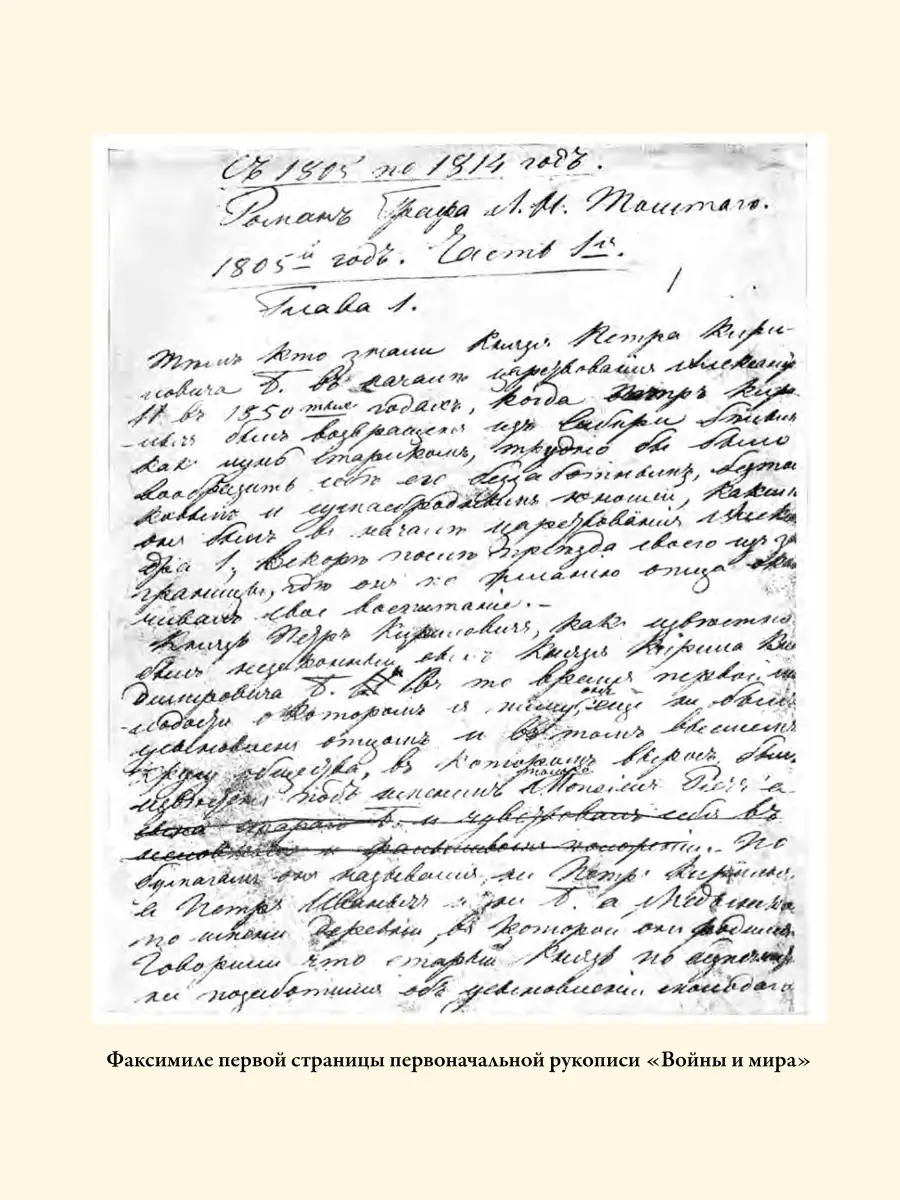 Съ 1805 по 1814 годъ.
Романъ Графа Л. Н. Толстаго.
1805й годъ. Часть 1я.
Глава 1.
Тѣмъ кто знали Князя Петра Кири-
ловича Б. въ началѣ царствованія Александра
II въ 1850тыхъ годахъ, когда Петръ Кир
былъ возвращенъ изъ Сибири бѣлымъ
какъ лунь старикомъ, трудно бы было
вообразить себѣ его беззаботнымъ, безтол
ковымъ и сумасброднымъ юношей, какимъ
онъ былъ въ началѣ царствованія Алекса
дра 1, вскорѣ послѣ пріѣзда своего изъ за
границы, гдѣ онъ по желанію отца окан
чивалъ свое воспитаніе. –
Князь Петръ Кириловичъ, какъ извѣстно
былъ незаконный сынъ Князя Кирила Вла
димировича Б. Въ то время
о которомъ я пишу, онъ еще не былъ
усыновленъ отцомъ и въ томъ высшемъ
кругу общества, въ которомъ выросъ, былъ
извѣстенъ подъ именемъ только Monsieur Pierre
сына стараго Б. и чувствовалъ себя въ
По
бумагамъ онъ назывался не Петръ Кирилычъ
а Петръ Иванычъ и не Б. а Медынскій
по имени деревни, въ которой онъ родился.
Говорили что старый Князь
не позаботился объ усыновленіи молодаго
Факсимиле первой страницы первоначальной рукописи «Войны и мира»